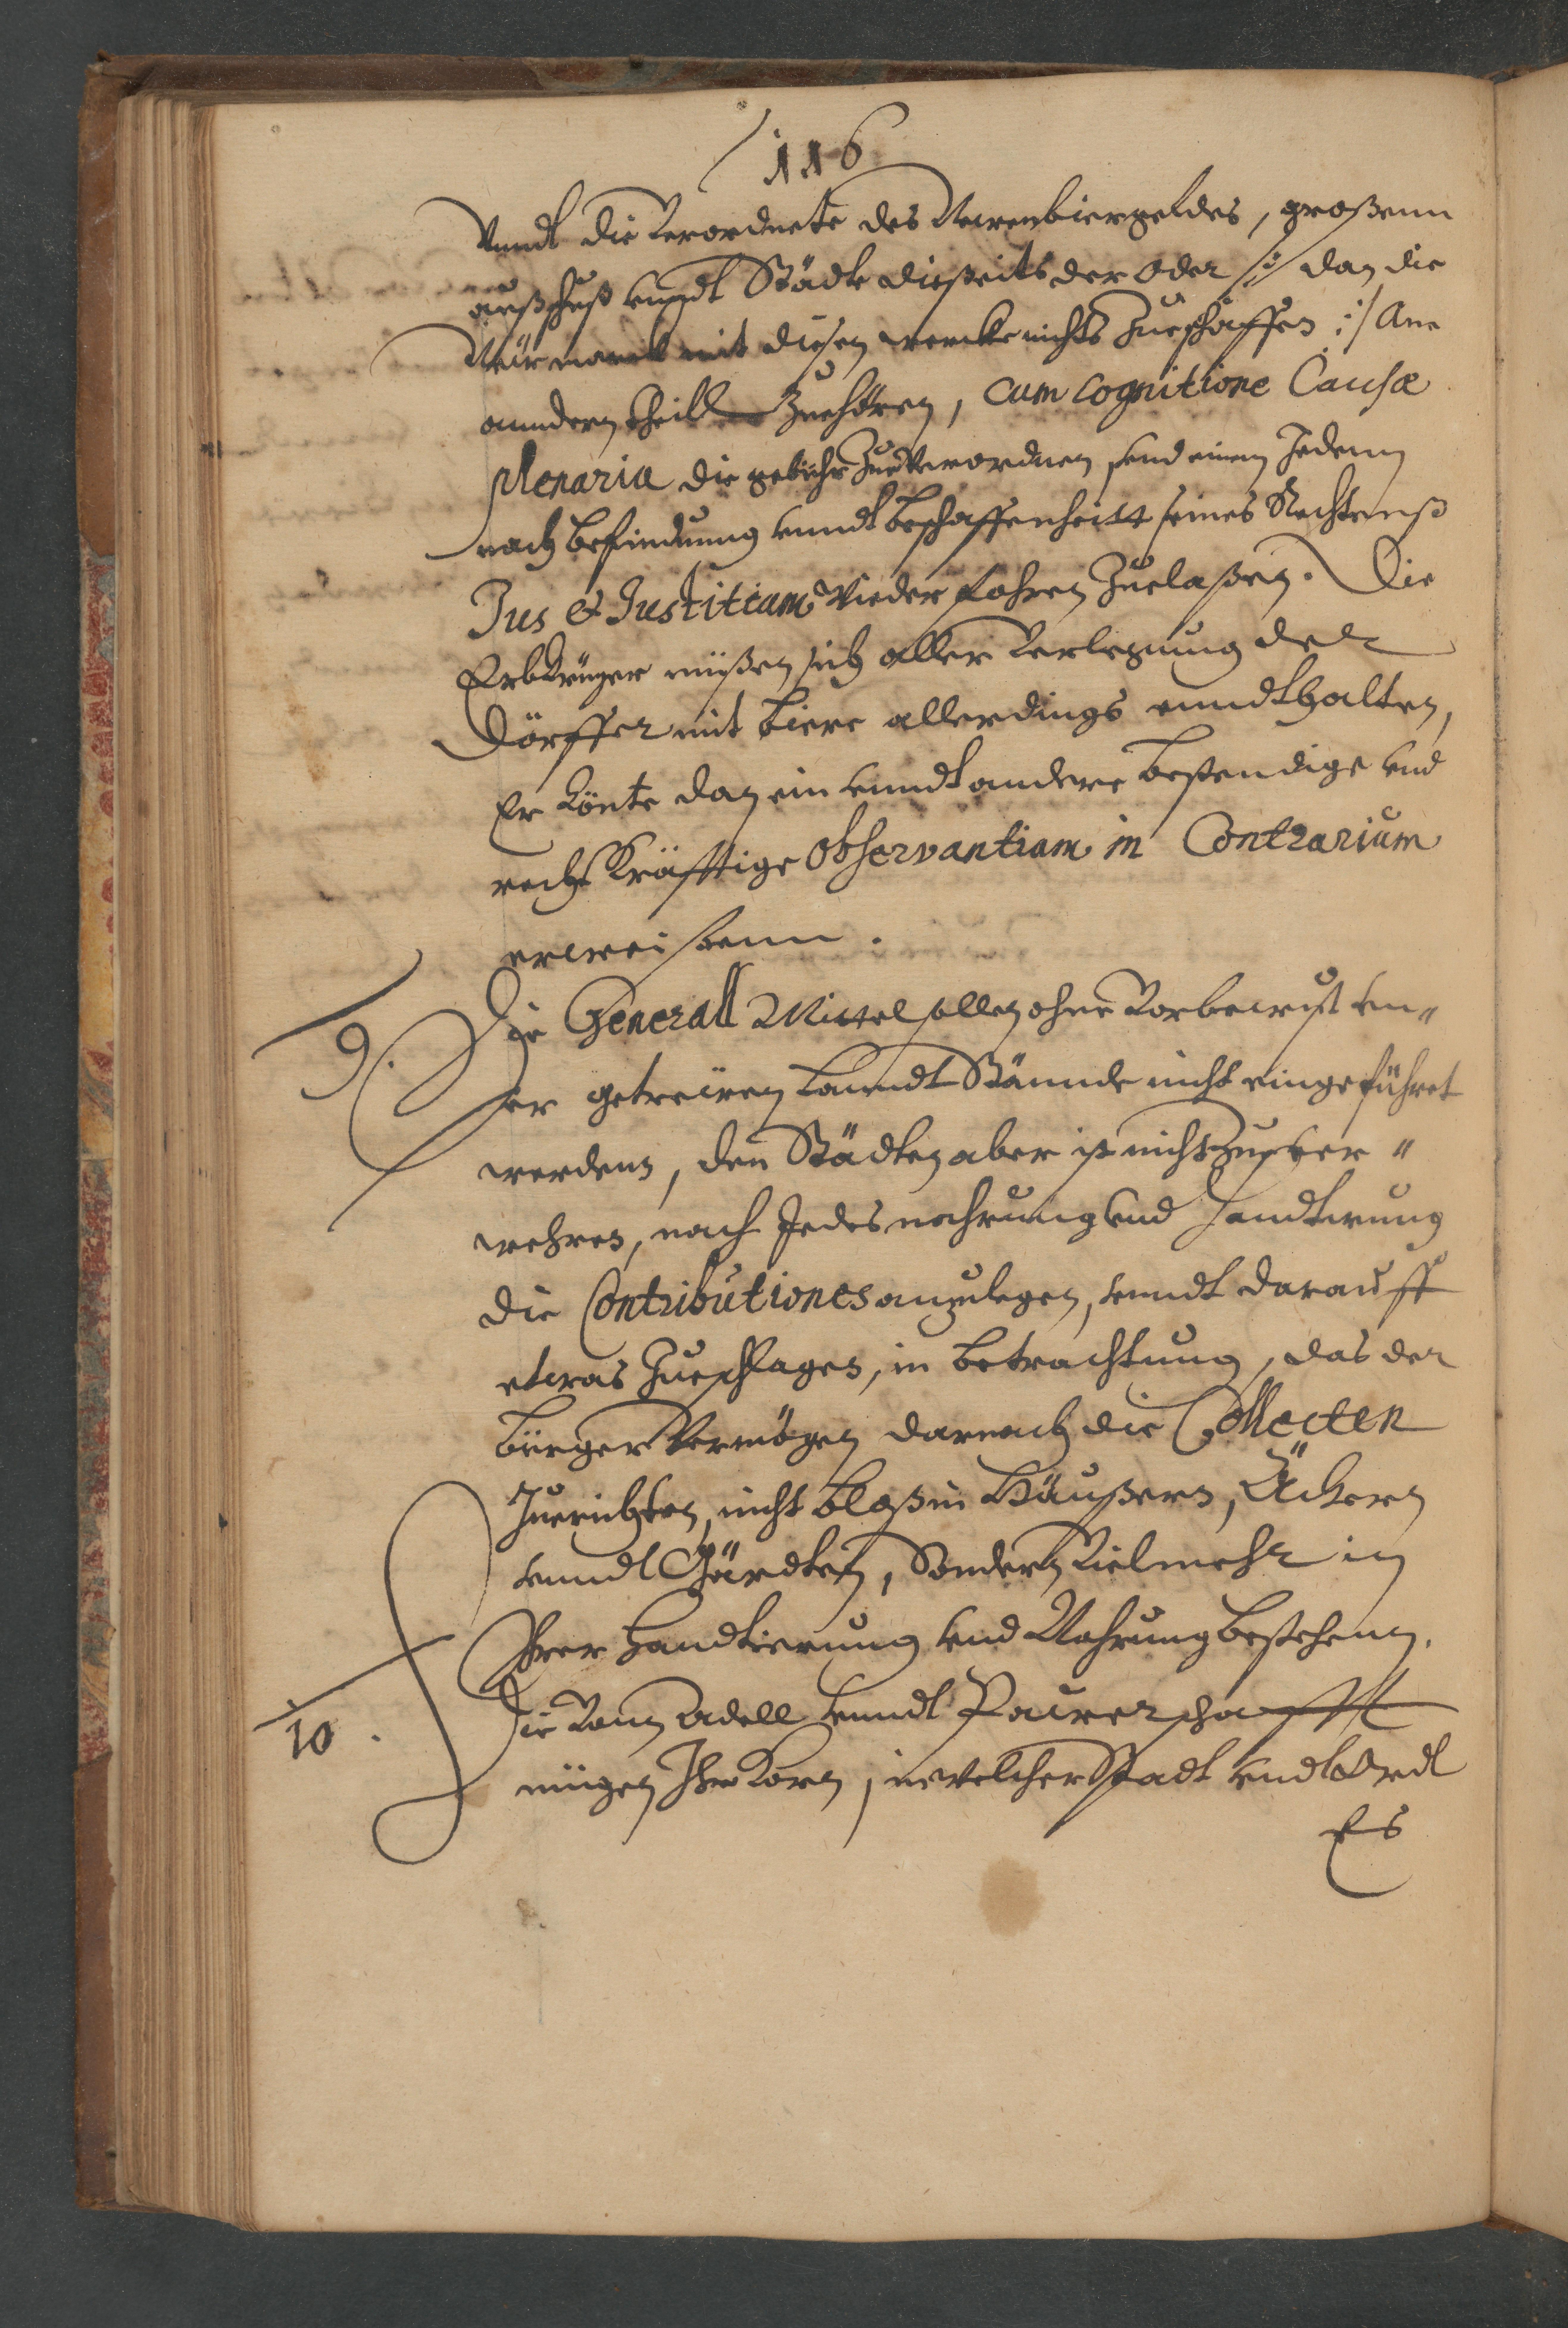 116
Unndt die Verordnete des Neuenbiergeldes, großenn
außschuß unndt Städte dießeits der Oder /: dan die
Neümarck mit diesen wercke nichts Zueschaffen :/ Am
anndern theill Zuehören, cum cognitione Causæ
plenaria die gebühr Zueverordnen, und einem Jedenn
nach befindung unndt beschaffenheitt seines Rechtenß
Jus & Justitiam Wiederfahren Zuelaßen. Die
Erbkrüger müßen sich aller Verlegung der
Dörffer mit biere allerdings enndthalten,
Er könte dan ein unndt andere bestendige und
rechtskräfftige observantiam in Contrarium
erweisenn.
9. Die Generall Mittel sollen ohne Vorbewust un„
ser getreüen Landt Stännde nicht eingeführet
werdenn, den Städten aber ist nicht Zuever„
wehren, nach Jedes nahrung und handtirung
die Contributiones anzulegen, unndt darauff
etwas Zueschlagen, in betrachtung, das der
bürger Vermögen darnach die Collecten
Zuerichten, nicht bloß in Häußern, Äckern
unndt Gärdten, Sondern Vielmehr in
Ihrer Handtierung und Nahrung bestehenn.
10. Die Vom Adell unndt Paurerschafft
mügen Ihr Korn, in welcher Stadt undt Ordt
Es